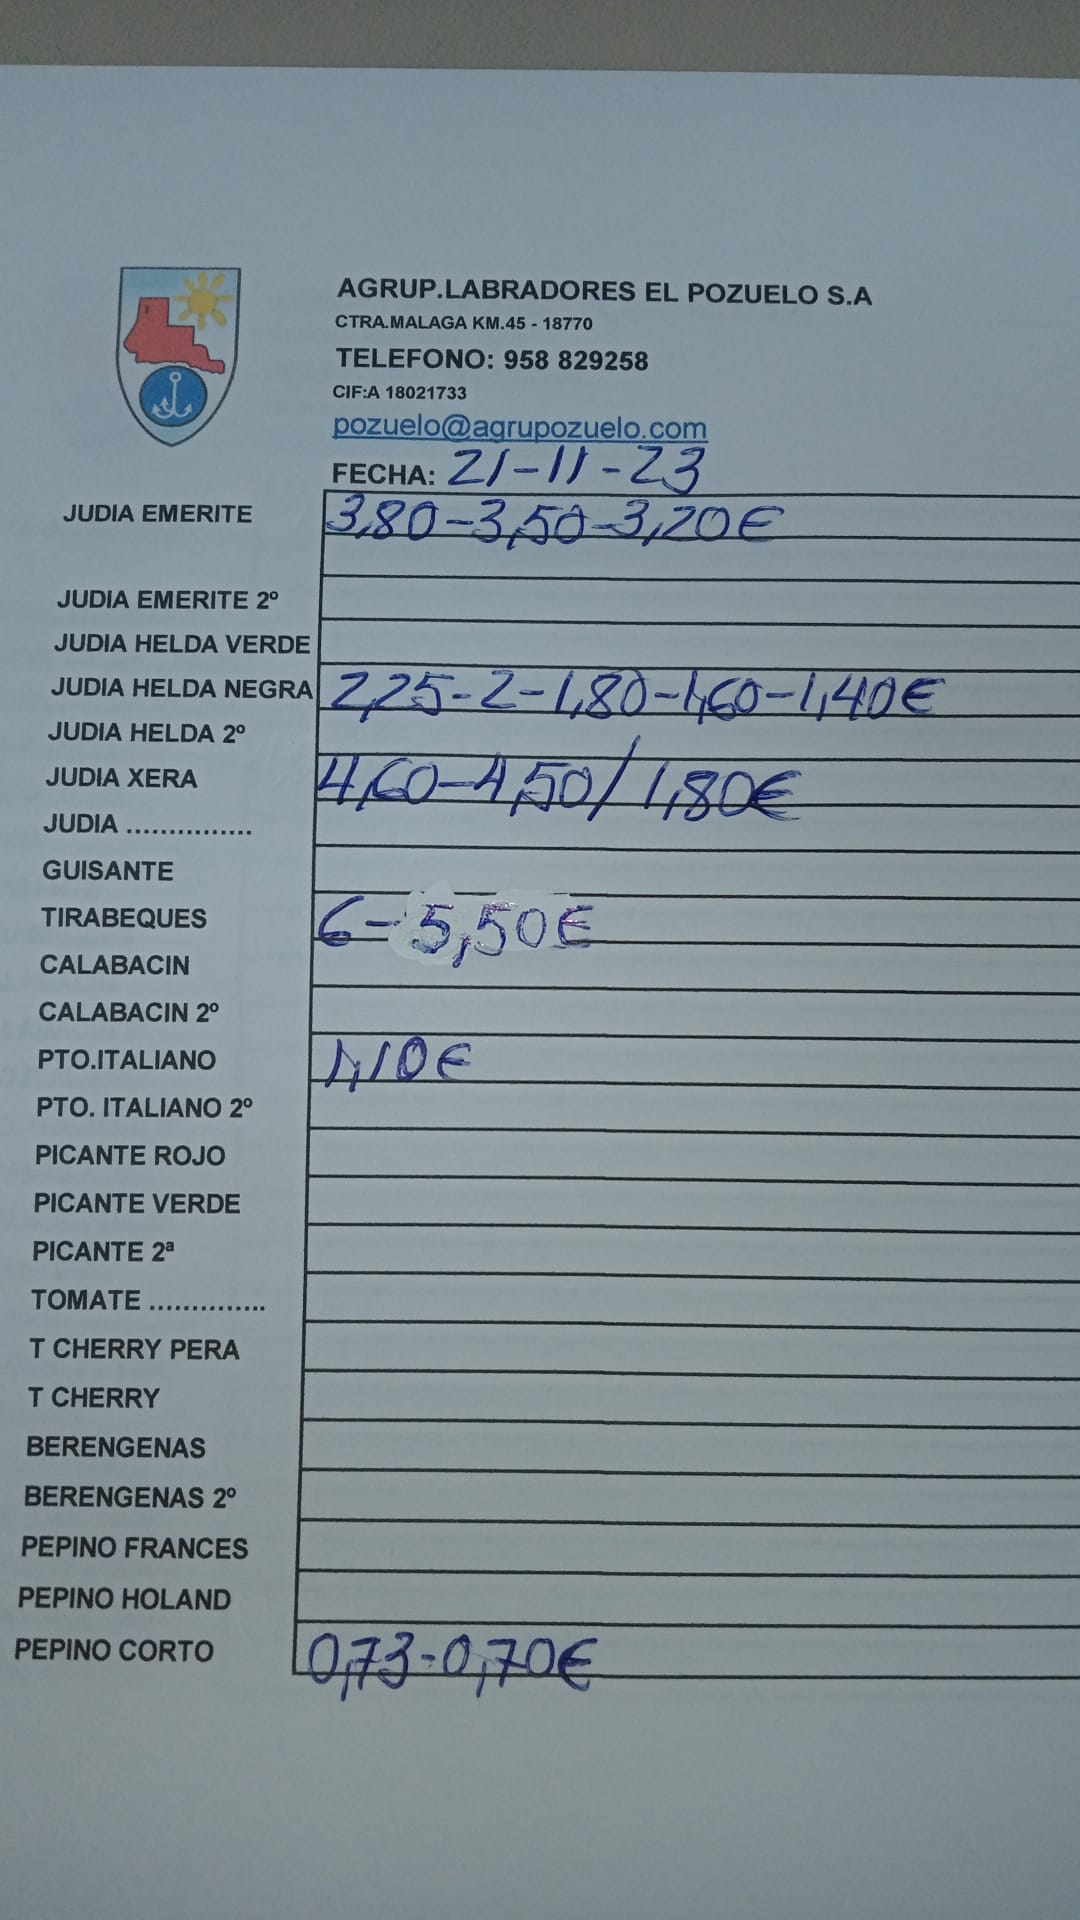 AGRUP.LABRADORES EL POZUELO S.A
CTRA.MALAGA KM.45 - 18770
TELEFONO: 958 829258
CIF:A 18021733
pozuelo@agrupozuelo.com
FECHA: 21-11-23
JUDIA EMERITE 3,80-3,50-3,20€
JUDIA EMERITE 2º
JUDIA HELDA VERDE
JUDIA HELDA NEGRA 2,25-2-1,80-1,60-1,40€
JUDIA HELDA 2º
JUDIA XERA 4,60-4,50/1,80€
JUDIA ...............
GUISANTE
TIRABEQUES 6-5,50€
CALABACIN
CALABACIN 2º
PTO.ITALIANO 1,10€
PTO. ITALIANO 2º
PICANTE ROJO
PICANTE VERDE
PICANTE 2ª
TOMATE ..............
T CHERRY PERA
T CHERRY
BERENGENAS
BERENGENAS 2º
PEPINO FRANCES
PEPINO HOLAND
PEPINO CORTO 0,73-0,70€